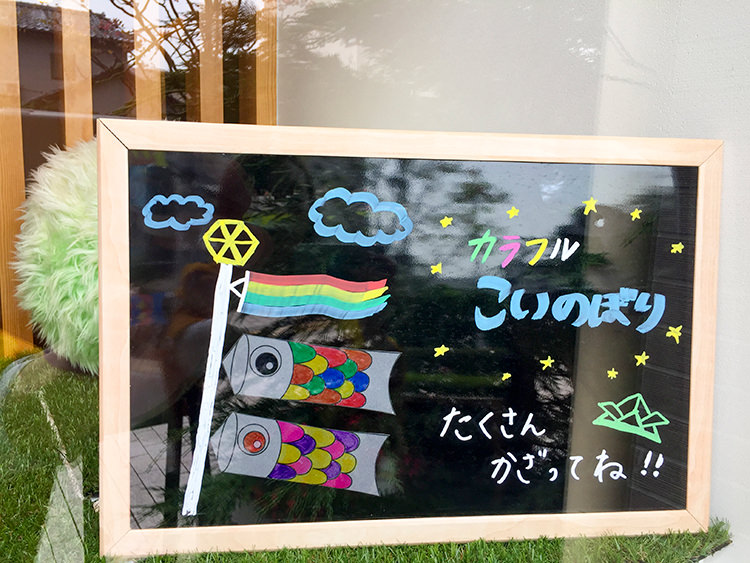 カラフル
こいのぼり
たくさん
かざってね!!